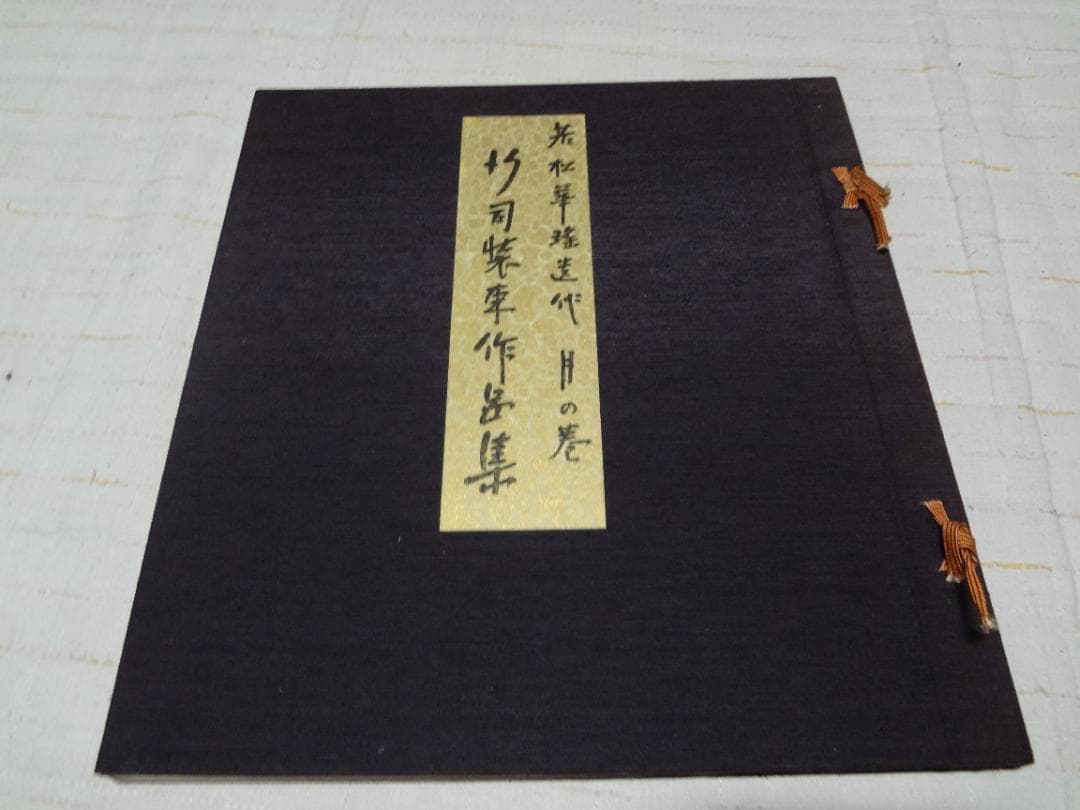 若松華瑶遺作 月の巻
竹司装束作品集